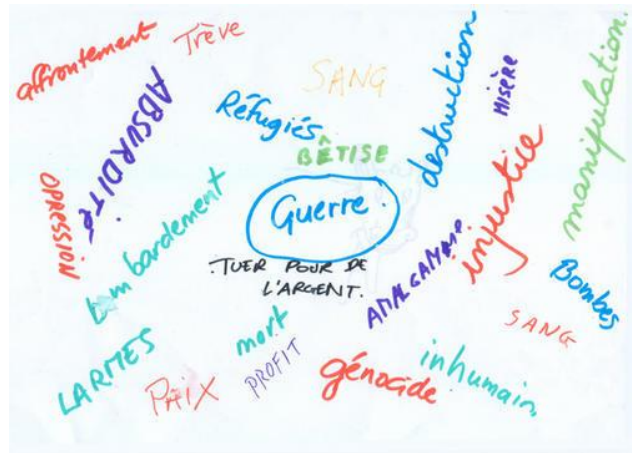 affrontement
Trève
SANG
destruction
MISÈRE
manipulation.
ABSURDITÉ
Réfugiés
BÊTISE
injustice
OPRESSION
bombardement
Guerre
TUER POUR DE
L'ARGENT.
AMALGAMME
Bombes
SANG
LARMES
PAIX
mort
PROFIT
génocide
inhumain.